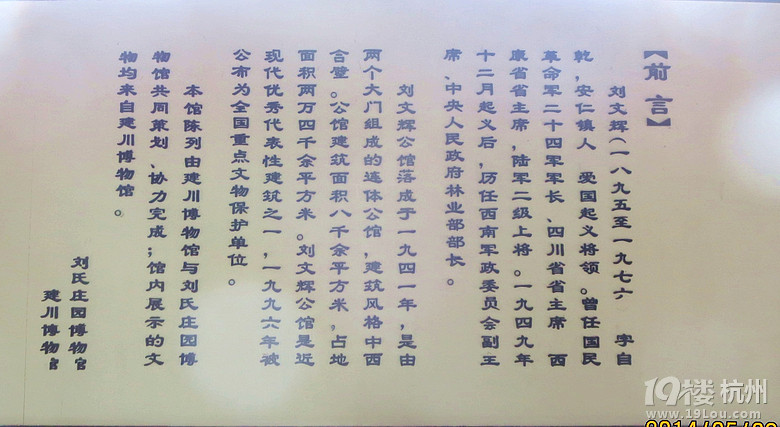 【前言】
刘文辉(一八九五至一九七六) 字自
乾,安仁镇人 爱国起义将领。曾任国民
革命军二十四军军长、四川省省主席 西
康省省主席,陆军二级上将。一九四九年
十二月起义后,历任西南军政委员会副主
席、中央人民政府林业部部长。
刘文辉公馆落成于一九四一年,是由
两个大门组成的连体公馆,建筑风格中西
合璧。公馆建筑面积八千余平方米,占地
面积两万四千余平方米。刘文辉公馆是近
现代优秀代表性建筑之一,一九九六年被
公布为全国重点文物保护单位。
本馆陈列由建川博物馆与刘氏庄园博
物馆共同策划、协力完成;馆内展示的文
物均来自建川博物馆。
刘氏庄园博物馆
建川博物馆
19楼 杭州
www.19Lou.com